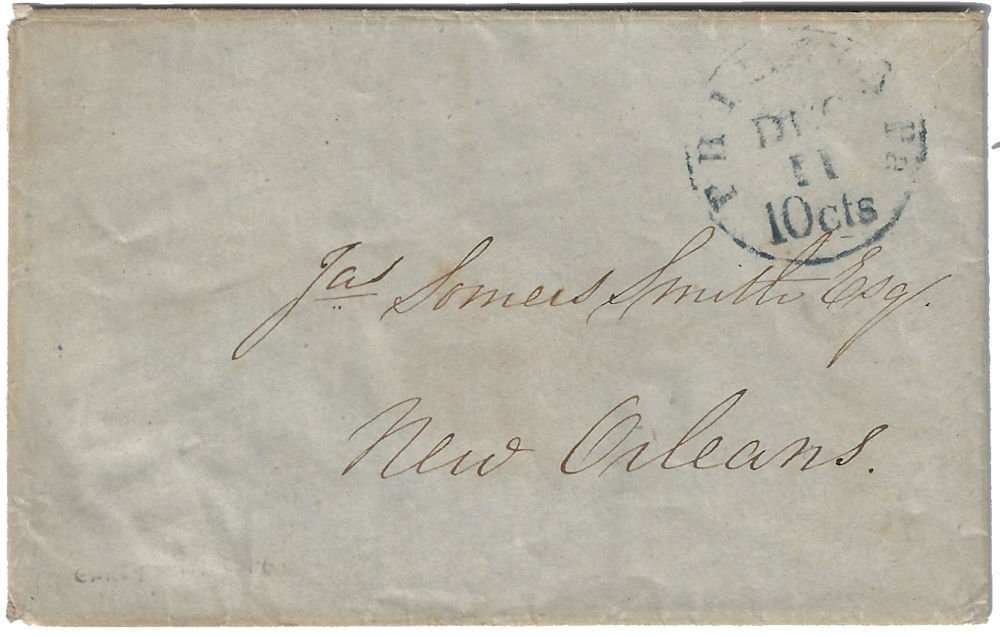 11
10cts
Jas Somers Smith Esq.
New Orleans.